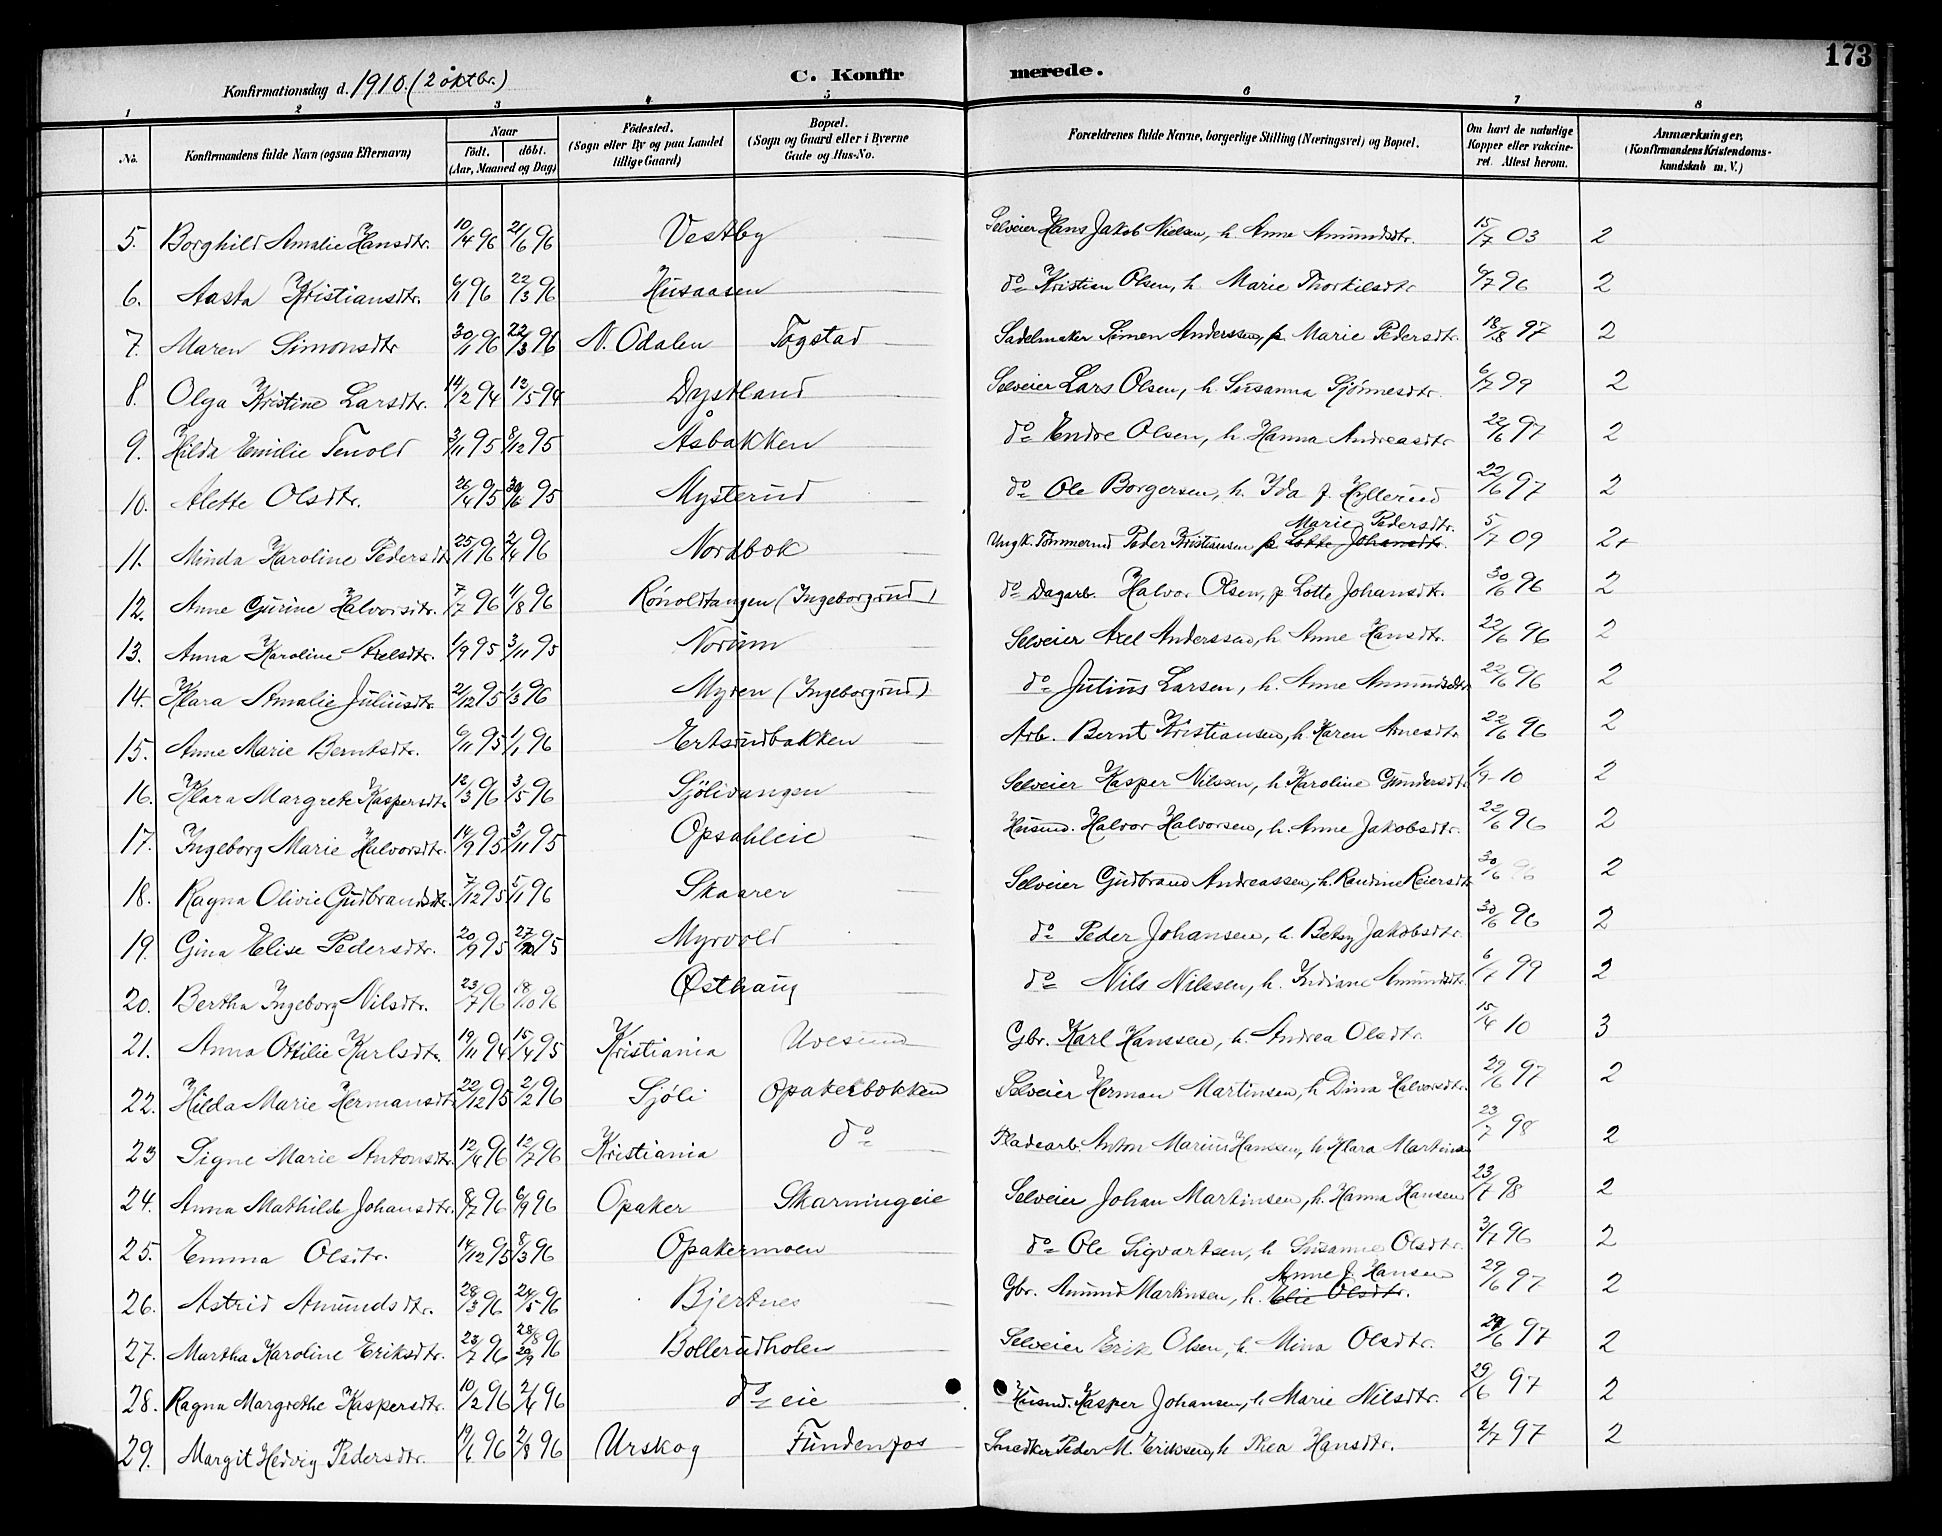 173
Konfirmationsdag d. 1910. (2 oktbr.) C. Konfirmerede.
1 2 3 4 5 6 7 8
No. Konfirmandens fulde Navn (ogsaa Efternavn) Naar födt. döbt. (Aar, Maaned og Dag) Födested. (Sogn eller By og paa Landet tillige Gaard) Bopæl. (Sogn og Gaard eller i Byerne Gade og Hus-No. Forældrenes fulde Navne, borgerlige Stilling (Næringsvei) og Bopæl. Om havt de naturlige Kopper eller vakcineret. Attest herom. Anmærkninger. (Konfirmandens Kristendomskundskab m. V.)
5. Borghild Amalie Hansdtr. 10/4 96 21/6 96 Vestby Selveier Hans Jakob Nielsen, h. Anne Amundsdtr. 15/7 03 2
6. Aasta Kristiansdtr. 6/1 96 22/3 96 Husaasen do Kristian Olsen, h. Marie Thorkilsdtr 6/7 96 2
7. Maren Simonsdtr 30/1 96 22/3 96 N. Odalen Togstad Sadelmaker Simen Anderssen, p. Marie Pedersdtr. 18/8 97 2
8. Olga Kristine Larsdtr. 14/2 94 13/5 94 Dystland Selveier Lars Olsen, h. Susanna Sjönnesdtr. 6/7 99 2
9. Hilda Emilie Tenold 3/11 95 8/12 95 Åsbakken do Endre Olsen, h. Hanna Andreasdtr 22/6 97 2
10. Alette Olsdtr. 26/4 95 30/6 95 Mysterud do Ole Borgersen, h. Ida f. Hyllerud 22/6 97 2
11. Minda Karoline Pedersdtr 25/1 96 2/4 96 Nordbok Ungk. Tömmermd Peder Kristiansen p. Lotte Johansdtr. Marie Pedersdtr. 5/7 09 2+
12. Anne Gurine Halvorsdtr. 7/7 96 11/8 96 Rönoldtangen (Ingeborgrud) do Dagarb. Halvor Olsen, p Lotte Johansdtr. 30/6 96 2
13. Anna Karoline Axelsdtr. 1/9 95 3/11 95 Norum Selveier Axel Anderssen, h. Anne Hansdtr. 22/6 96 2
14. Klara Amalie Juliusdtr. 2/12 95 1/3 96 Myren (Ingeborgrud) do Julius Larsen, h. Anne Amundsdtr 22/6 96 2
15. Anne Marie Berntsdtr. 6/11 95 1/1 96 Ertsundbakken Arb. Bernt Kristiansen, h. Karen Arnesdtr 22/6 96 2
16. Klara Margrete Kaspersdtr. 12/3 96 3/5 96 Sjölivangen Selveier Kasper Nilssen, h. Karoline Gundersdtr 1/9-10 2
17. Ingeborg Marie Halvorsdtr. 14/9 95 3/11 95 Opsahleie Husmd. Halvor Halvorsen, h. Anne Jakobsdtr. 22/6 96 2
18. Ragna Olivie Gudbrandsdtr. 7/12 95 5/1 96 Skaarer Selveier Gudbrand Andreassen, h. Randine Reiersdtr 30/6 96 2
19. Gina Elise Pedersdtr. 20/9 95 27/10 95 Myrvold do Peder Johansen, h. Betsy Jakobsdtr. 30/6 96 2
20. Bertha Ingeborg Nilsdtr. 23/7 96 18/10 96 Østhaug do Nils Nilssen, h. Indiane Amundsdtr. 6/7 99 2
21. Anna Ottilie Karlsdtr. 19/11 94 15/4 95 Kristiania Uvesund Gbr. Karl Hanssen, h. Andrea Olsdtr. 15/4 10 3
22. Hilda Marie Hermansdtr 22/12 95 2/2 96 Sjöli Opakerbokken Selveier Herman Martinsen, h Dina Halvorsdtr. 29/6 97 2
23 Signe Marie Antonsdtr. 12/4 96 12/7 96 Kristiania do Pladearb. Anton Marius Hanssen, h. Klara Martinsen 23/7 98 2
24. Anna Mathilde Johansdtr. 8/7 96 6/9 96 Opaker Skarningeie Selveier Johan Martinsen, h. Hanna Hansen 23/7 98 2
25. Emma Olsdtr. 14/12 95 8/3 96 Opakermoen do Ole Sigvartsen, h Susanne Olsdtr. 3/7 96 2
26. Astrid Amundsdtr. 28/3 96 24/5 96 Bjertnes Gbr. Amund Martinsen, h. Elie Olsdtr. Anne f. Hansen 29/6 97 2
27. Martha Karoline Eriksdtr. 23/7 96 28/8 20/9 96 Bollerudholen Selveier Erik Olsen, h. Mina Olsdtr. 29/6 97 2
28. Ragna Margrethe Kaspersdtr. 10/2 96 2/4 96 do eie Husmd. Kasper Johansen, h Marie Nilsdtr. 29/6 97 2
29. Margit Hedvig Pedersdtr. 19/6 96 2/8 96 Urskog Fundenfos Snedker Peder M. Eriksen, h Thea Hansdtr. 2/7 97 2